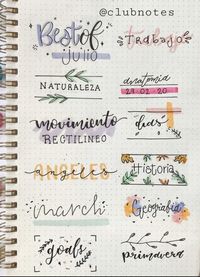 @clubnotes
Best of
julio
Trabajo
NATURALEZA
anatomía
21·02·20
movimiento
RECTILINEO
días
angeles
Historia
march
Geografía
goals
primavera